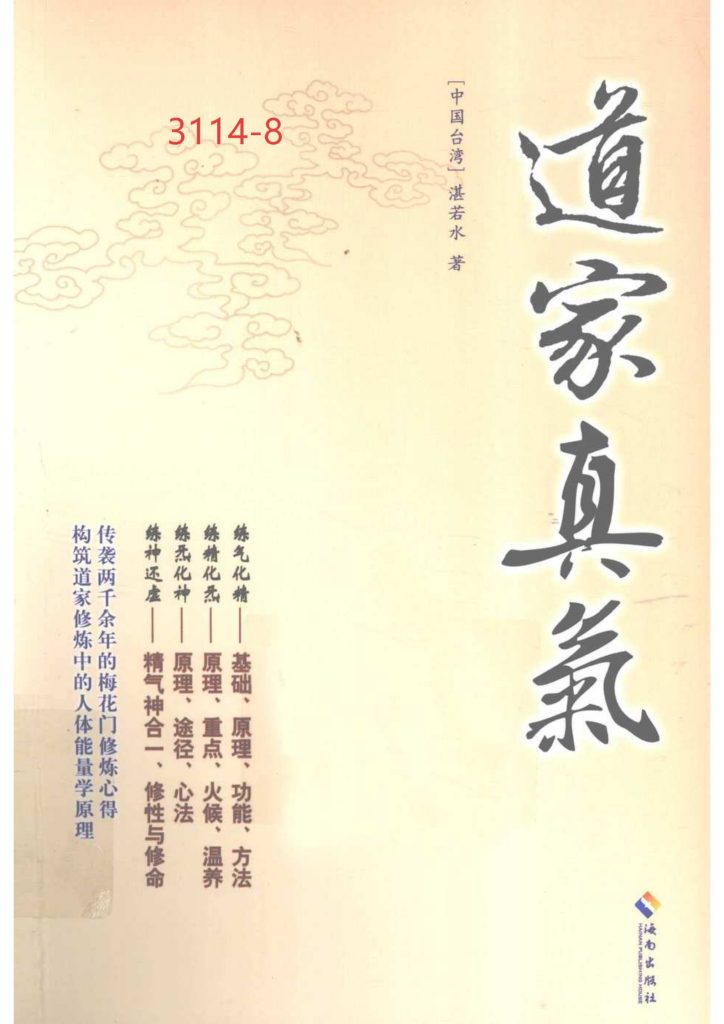 3114-8
道家真氣
［中国台湾］湛若水 著
练气化精——基础、原理、功能、方法
练精化炁——原理、重点、火候、温养
练炁化神——原理、途径、心法
练神还虚——精气神合一、修性与修命
传袭两千余年的梅花门修炼心得
构筑道家修炼中的人体能量学原理
海南出版社
HAINAN PUBLISHING HOUSE